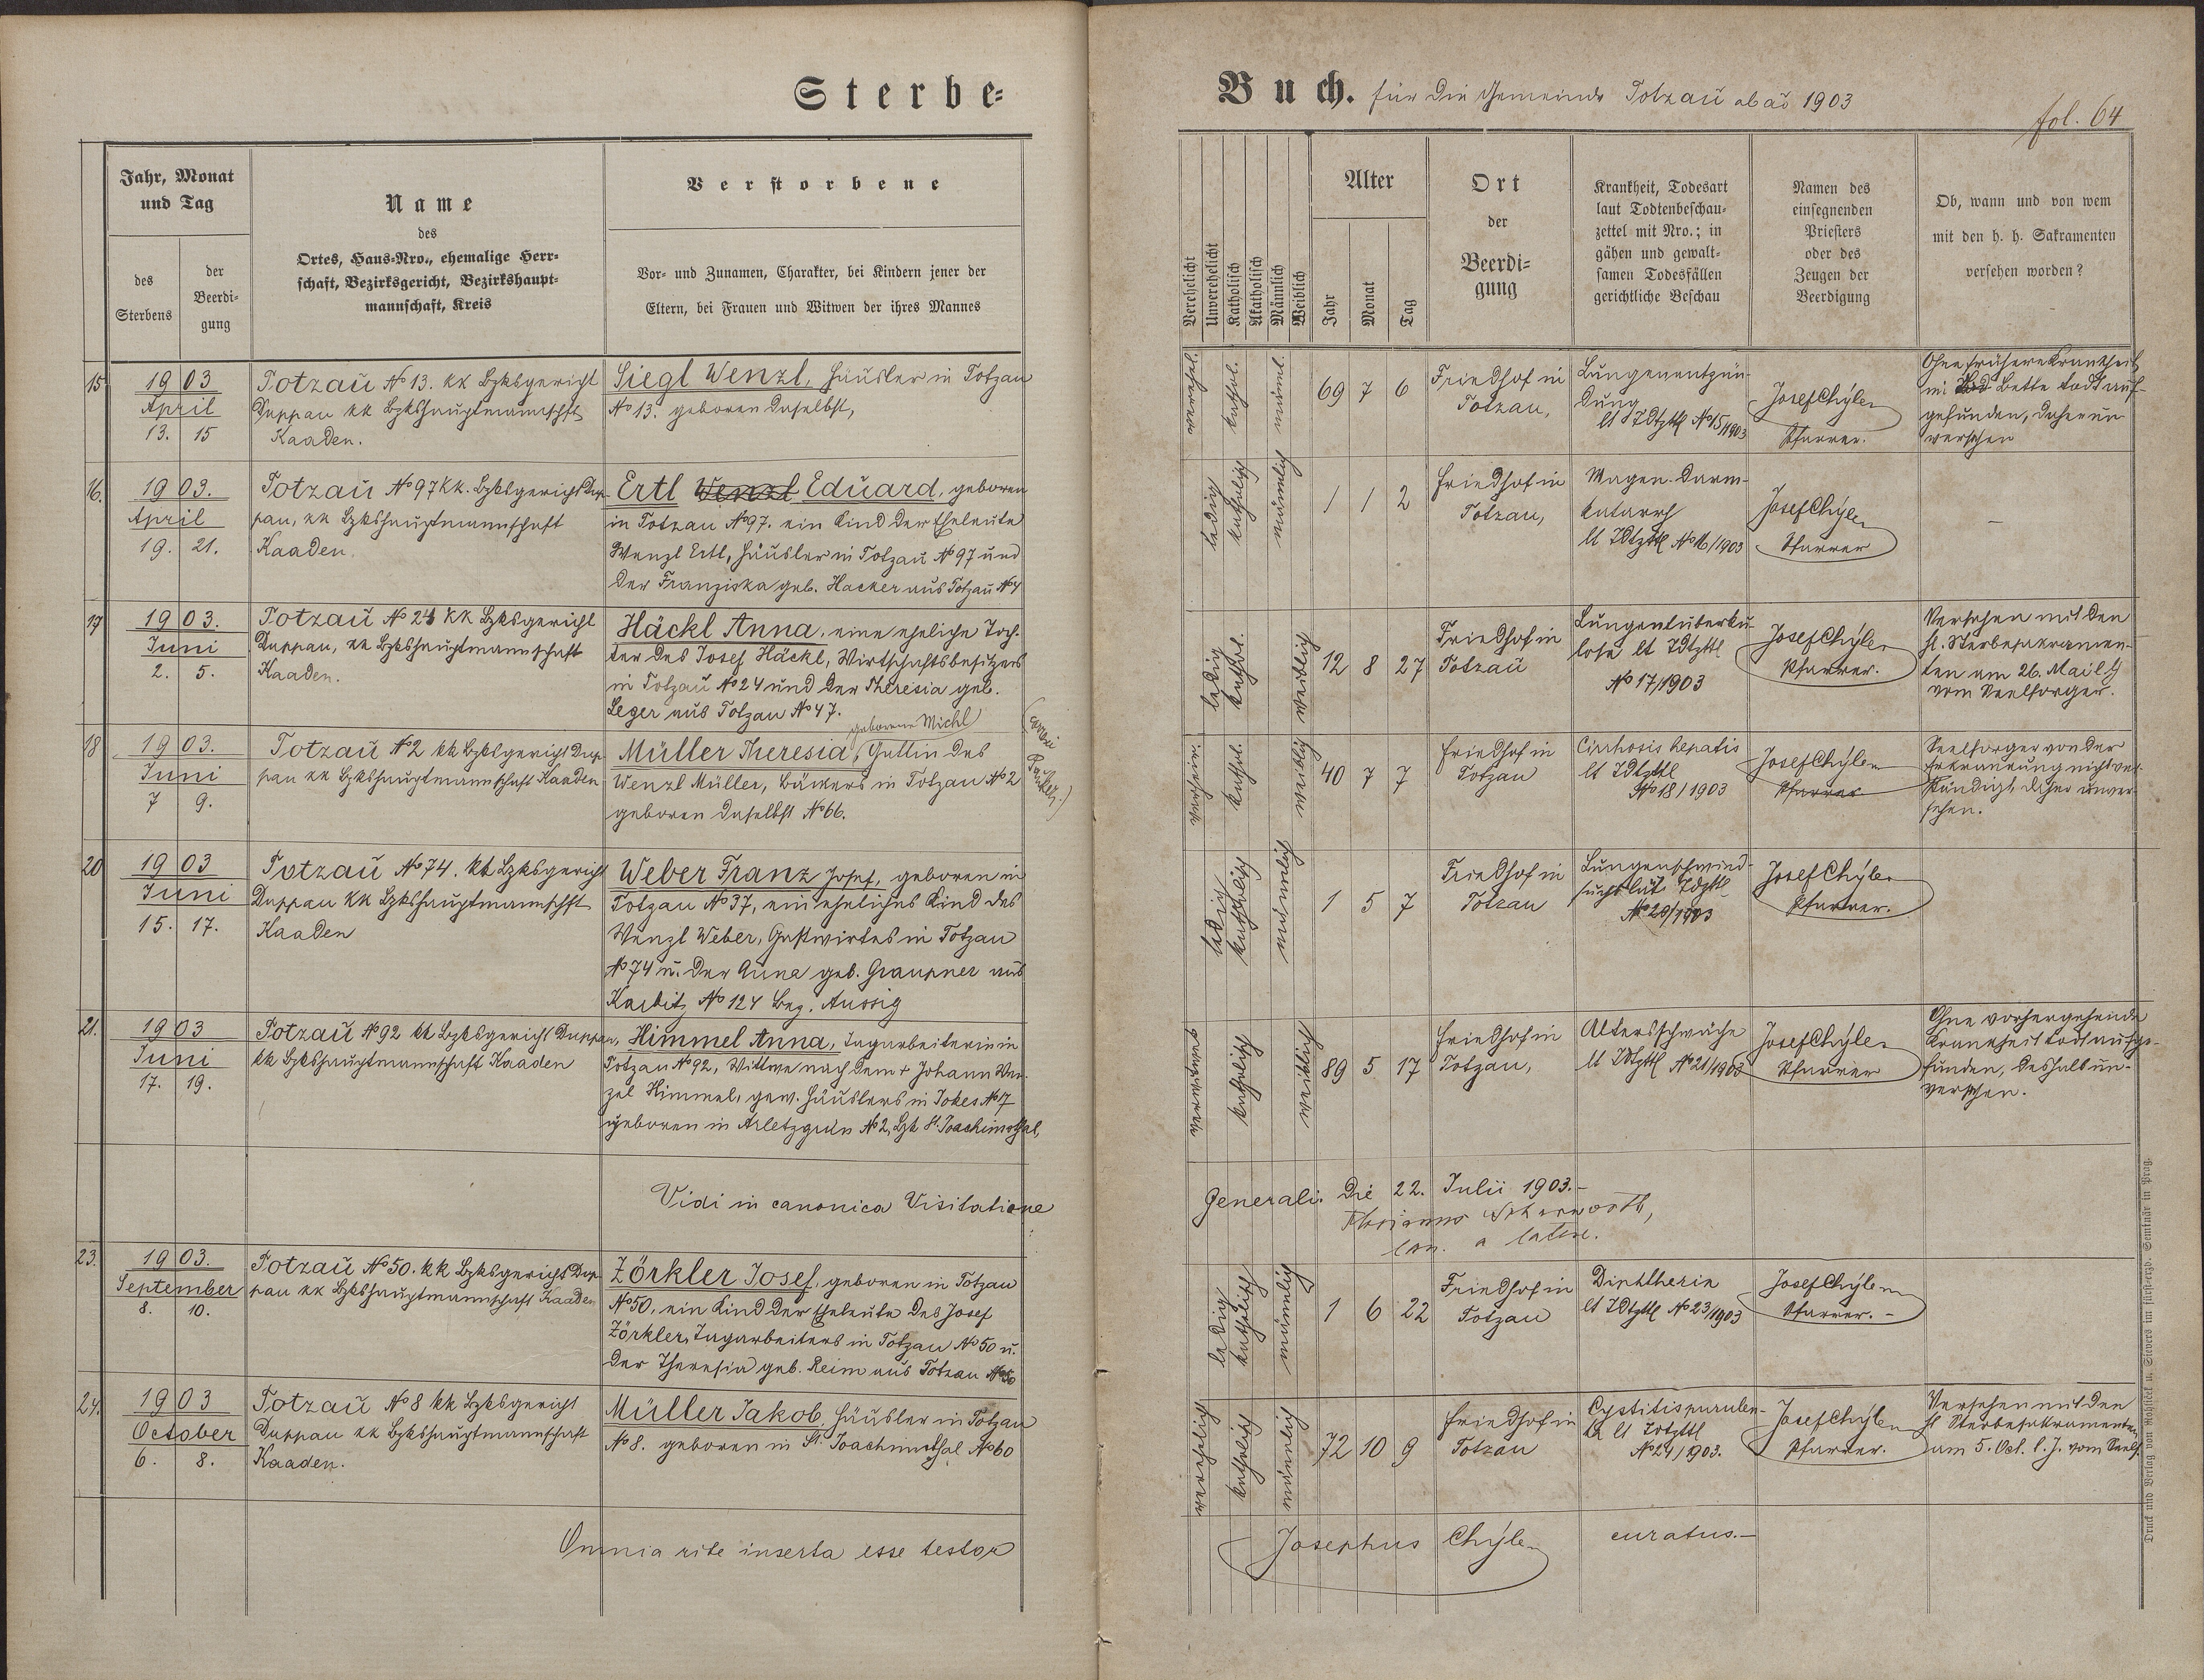 Sterbe-
Buch. für die Gemeinde Totzau ab ao 1903
fol. 64
Jahr, Monat
und Tag
des
Sterbens
der
Beerdi-
gung
Name
des
Ortes, Haus-Nro., ehemalige Herr-
schaft, Bezirksgericht, Bezirkshaupt-
mannschaft, Kreis
Verstorbene
Vor- und Zunamen, Charakter, bei Kindern jener der
Eltern, bei Frauen und Witwen der ihres Mannes
Verehelicht
Unverehelicht
Katholisch
Akatholisch
Männlich
Weiblich
Alter
Jahr
Monat
Tag
Ort
der
Beerdi-
gung
Krankheit, Todesart
laut Todtenbeschau-
zettel mit Nro.; in
gähen und gewalt-
samen Todesfällen
gerichtliche Beschau
Namen des
einsegnenden
Priesters
oder des
Zeugen der
Beerdigung
Ob, wann und von wem
mit den h. h. Sakramenten
versehen worden?
15
1903
April
13. 15
Totzau No 13. kk Bzksgericht
Duppau kk Bzkshauptmannschft
Kaaden.
Siegl Wenzl, Häusler in Totzau
No 13. geboren daselbst,
verehel.
kathol.
männl.
69 7 6
Friedhof in
Totzau,
Lungenentzün-
dung
lt TDtzttl No 15/1903
Josef Chyle
Pfarrer.
Ohne frühere Krankheit
im Bette todt auf-
gefunden, daher un-
versehen
16.
1903.
April
19. 21.
Totzau No 97 kk. Bzksgericht Dup-
pau, kk Bzkshauptmannschaft
Kaaden.
Ertl Wenzl Eduard, geboren
in Totzau No 97. ein Kind der Eheleute
Wenzl Ertl, Häusler in Totzau No 97 und
der Franziska geb. Hacker aus Totzau No 4
ledig
katholisch
männlich
1 1 2
Friedhof in
Totzau,
Magen-Darm-
katarrh
lt TDtzttl No 16/1903
Josef Chyle
Pfarrer
–
17
1903.
Juni
2. 5.
Totzau No 24 kk Bzksgericht
Duppau, kk Bzkshauptmannschaft
Kaaden.
Häckl Anna, eine eheliche Toch-
ter des Josef Häckl, Wirtschaftsbesitzers
in Totzau No 24 und der Theresia geb.
Leger aus Totzau No 47.
ledig
kathol.
weiblich
12 8 27
Friedhof in
Totzau
Lungentuberku-
lose lt TDtzttl
No 17/1903
Josef Chyle
Pfarrer.
Versehen mit den
hl. Sterbesakramen-
ten am 26. Mai l J
vom Seelsorger.
18
1903.
Juni
7 9.
Totzau No 2 kk Bzksgericht Dup-
pau kk Bzkshauptmannschaft Kaaden
geborene Michl
Müller Theresia, Gattin des
Wenzl Müller, Bäckers in Totzau No 2
geboren daselbst No 66.
verheir.
kathol.
weiblich
40 7 7
Friedhof in
Totzau
Cirrhosis hepatis
lt TDtzttl
No 18/1903
Josef Chyle
Pfarrer
Seelsorger von der
Erkrankung nicht ver-
ständigt, daher unver-
sehen.
20
1903
Juni
15. 17.
Totzau No 74. kk Bzksgericht
Duppau kk Bzkshauptmannschft
Kaaden
Weber Franz Josef, geboren in
Totzau No 37, ein eheliches Kind des
Wenzl Weber, Gastwirtes in Totzau
No 74 u. der Anna geb. Graupner aus
Karbitz No 124 Bez. Aussig
ledig
katholisch
männlich
1 5 7
Friedhof in
Totzau
Lungenschwind-
sucht laut TDzttl
No 20/1903
Josef Chyle
Pfarrer.
21.
1903
Juni
17. 19.
Totzau No 92 kk Bzksgericht Duppau,
kk Bzkshauptmannschaft Kaaden
Himmel Anna, Tagarbeiterin in
Totzau No 92, Wittwe nach dem + Johann Wen-
zel Himmel, gew. Häuslers in Tokes No 17
geboren in Arletzgrün No 2, Bzk St. Joachimsthal,
verwitwet
katholisch
weiblich
89 5 17
Friedhof in
Totzau,
Altersschwäche
lt TDtzttl No 21/1903
Josef Chyle
Pfarrer
Ohne vorhergehende
Krankheit todt aufge-
funden, deshalb un-
versehen.
Vidi in canonica Visitatione
Generali. Die 22. Julii 1903.–
a latere.
23.
1903.
September
8. 10.
Totzau No 50. kk Bzksgericht Dup-
pau kk Bzkshauptmannschaft Kaaden
Zörkler Josef, geboren in Totzau
No 50, ein Kind der Eheleute des Josef
Zörkler, Tagarbeiters in Totzau No 50 u.
der Theresia geb. Reim aus Totzau No 50
ledig
katholisch
männlich
1 6 22
Friedhof in
Totzau
Diphtherie
lt TDtzttl No 23/1903
Josef Chyle
Pfarrer. –
24.
1903
October
6. 8.
Totzau No 8 kk Bzksgericht
Duppau kk Bzkshauptmannschaft
Kaaden.
Müller Jakob, Häusler in Totzau
No 8. geboren in St. Joachimsthal No 60
verehelich
katholisch
männlich
72 10 9
Friedhof in
Totzau
Cystitis purulen-
ta lt Todtzttl
No 24/1903.
Josef Chyle
Pfarrer.
Versehen mit den
hl Sterbesakramenten
am 5. Oct. l. J. vom Seels.
Omnia rite inserta esse testor
Josephus Chyle curatus.–
Druck und Verlag von Rohliček u. Sievers im fürst-erzb. Seminär in Prag.